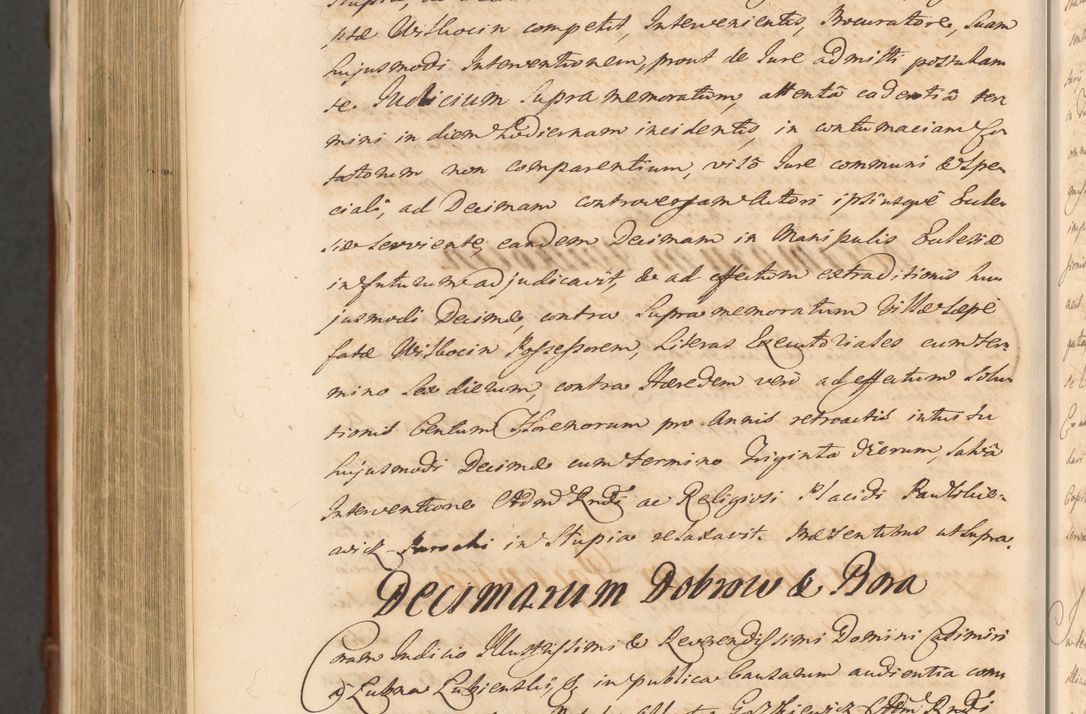 ptæ Wilkocin competit, Intervenientis, Procuratore, Suam
hujusmodi Interventionem, prout de Jure admitti postulan
te. Judicium supra memoratum, attentâ cadentiâ ter
mini in diem hodiernam incidentis, in contumaciam Ci
tatorum non comparentium, visô Jure communi & Spe
ciali, ad Decimam controversam Actori ipsiusque Eccle
siæ serviente, eandem Decimam in Manipulis Ecclesiæ
in futurum adjudicavit, & ad effectum extraditionis hu
jusmodi Decimæ, contra Supra memoratum Villæ sæpe
fatæ Wilkocin Possessorem, Literas Executoriales cum ter
mino Sex dierum, contra Hæredem verò ad effectum Solu
tionis Centum Florenorum pro Annis retroactis intuitu
hujusmodi Decimæ cum termino Triginta dierum, salvâ
Interventione Adm Rndi ac Religiosi Placidi
wicz Parochi in Stupia relaxavit. Præsentibus ut supra.
Decimarum Dobrow & Bora
Coram Judicio Illustrissimi & Reverendissimi Domini Casimiri
a Lubna Lubienski, &, in publica Causarum audientia com
Adm Rndi